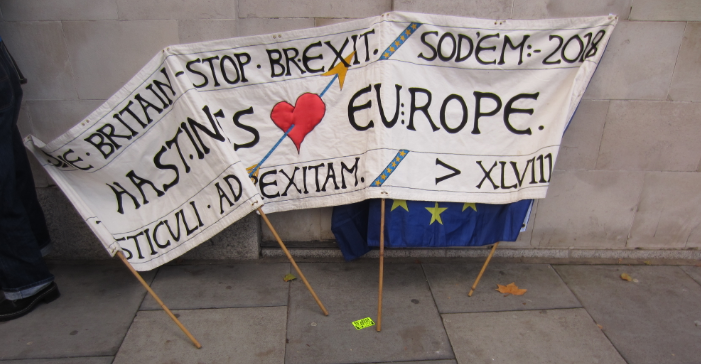 BRITAIN·STOP·BREXIT. SOD'EM:-2018
HAST·INGS EU:ROPE.
STICULI·AD EXITAM. > XLVIII